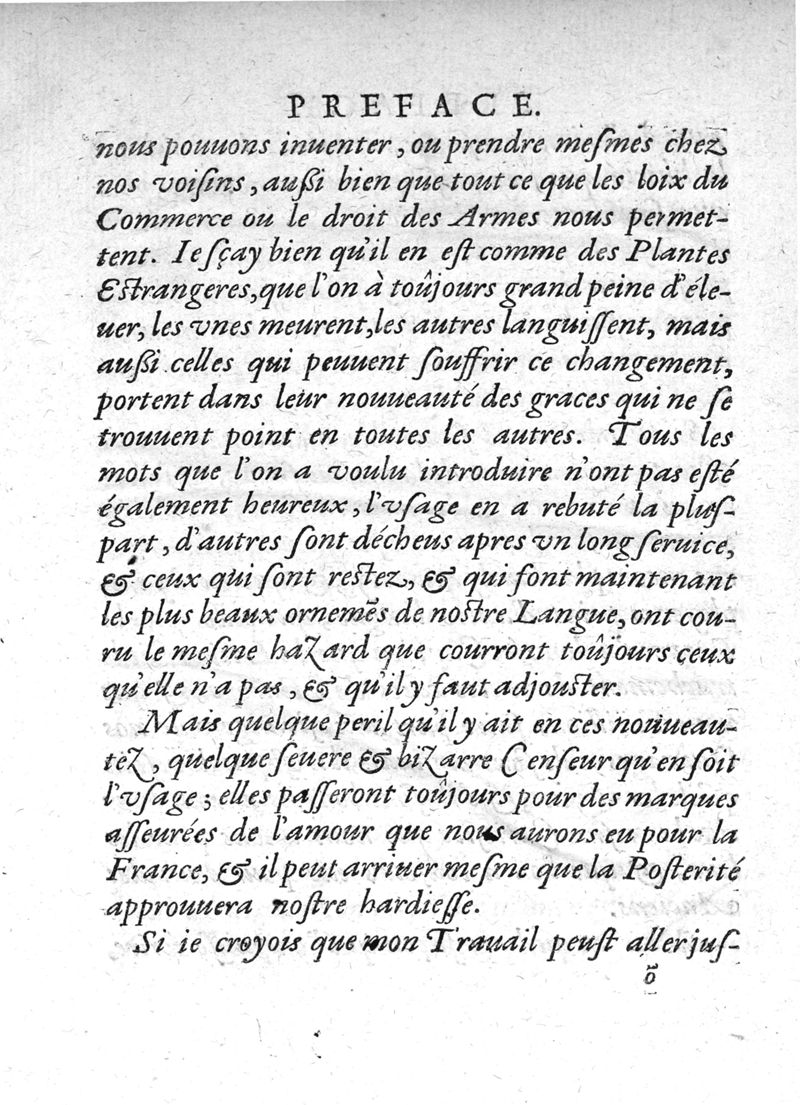 PREFACE.
nous pouuons inuenter, ou prendre meſmes chez
nos voiſins, außi bien que tout ce que les loix du
Commerce ou le droit des Armes nous permet-
tent. Ie ſçay bien qu'il en eſt comme des Plantes
Eſtrangeres, que l'on à toûjours grand peine d'éle-
uer, les vnes meurent, les autres languiſſent, mais
außi celles qui peuuent ſouffrir ce changement,
portent dans leur nouueauté des graces qui ne ſe
trouuent point en toutes les autres. Tous les
mots que l'on a voulu introduire n'ont pas eſté
également heureux, l'vſage en a rebuté la pluſ-
part, d'autres ſont décheus apres vn long ſeruice,
& ceux qui ſont reſtez, & qui font maintenant
les plus beaux ornemẽs de noſtre Langue, ont cou-
ru le meſme hazard que courront toûjours ceux
qu'elle n'a pas, & qu'il y faut adjouſter.
Mais quelque peril qu'il y ait en ces nouueau-
tez, quelque ſeuere & bizarre Cenſeur qu'en ſoit
l'vſage; elles paſſeront toûjours pour des marques
aſſeurées de l'amour que nous aurons eu pour la
France, & il peut arriuer meſme que la Poſterité
approuuera noſtre hardieſſe.
Si ie croyois que mon Trauail peuſt aller juſ-
õ